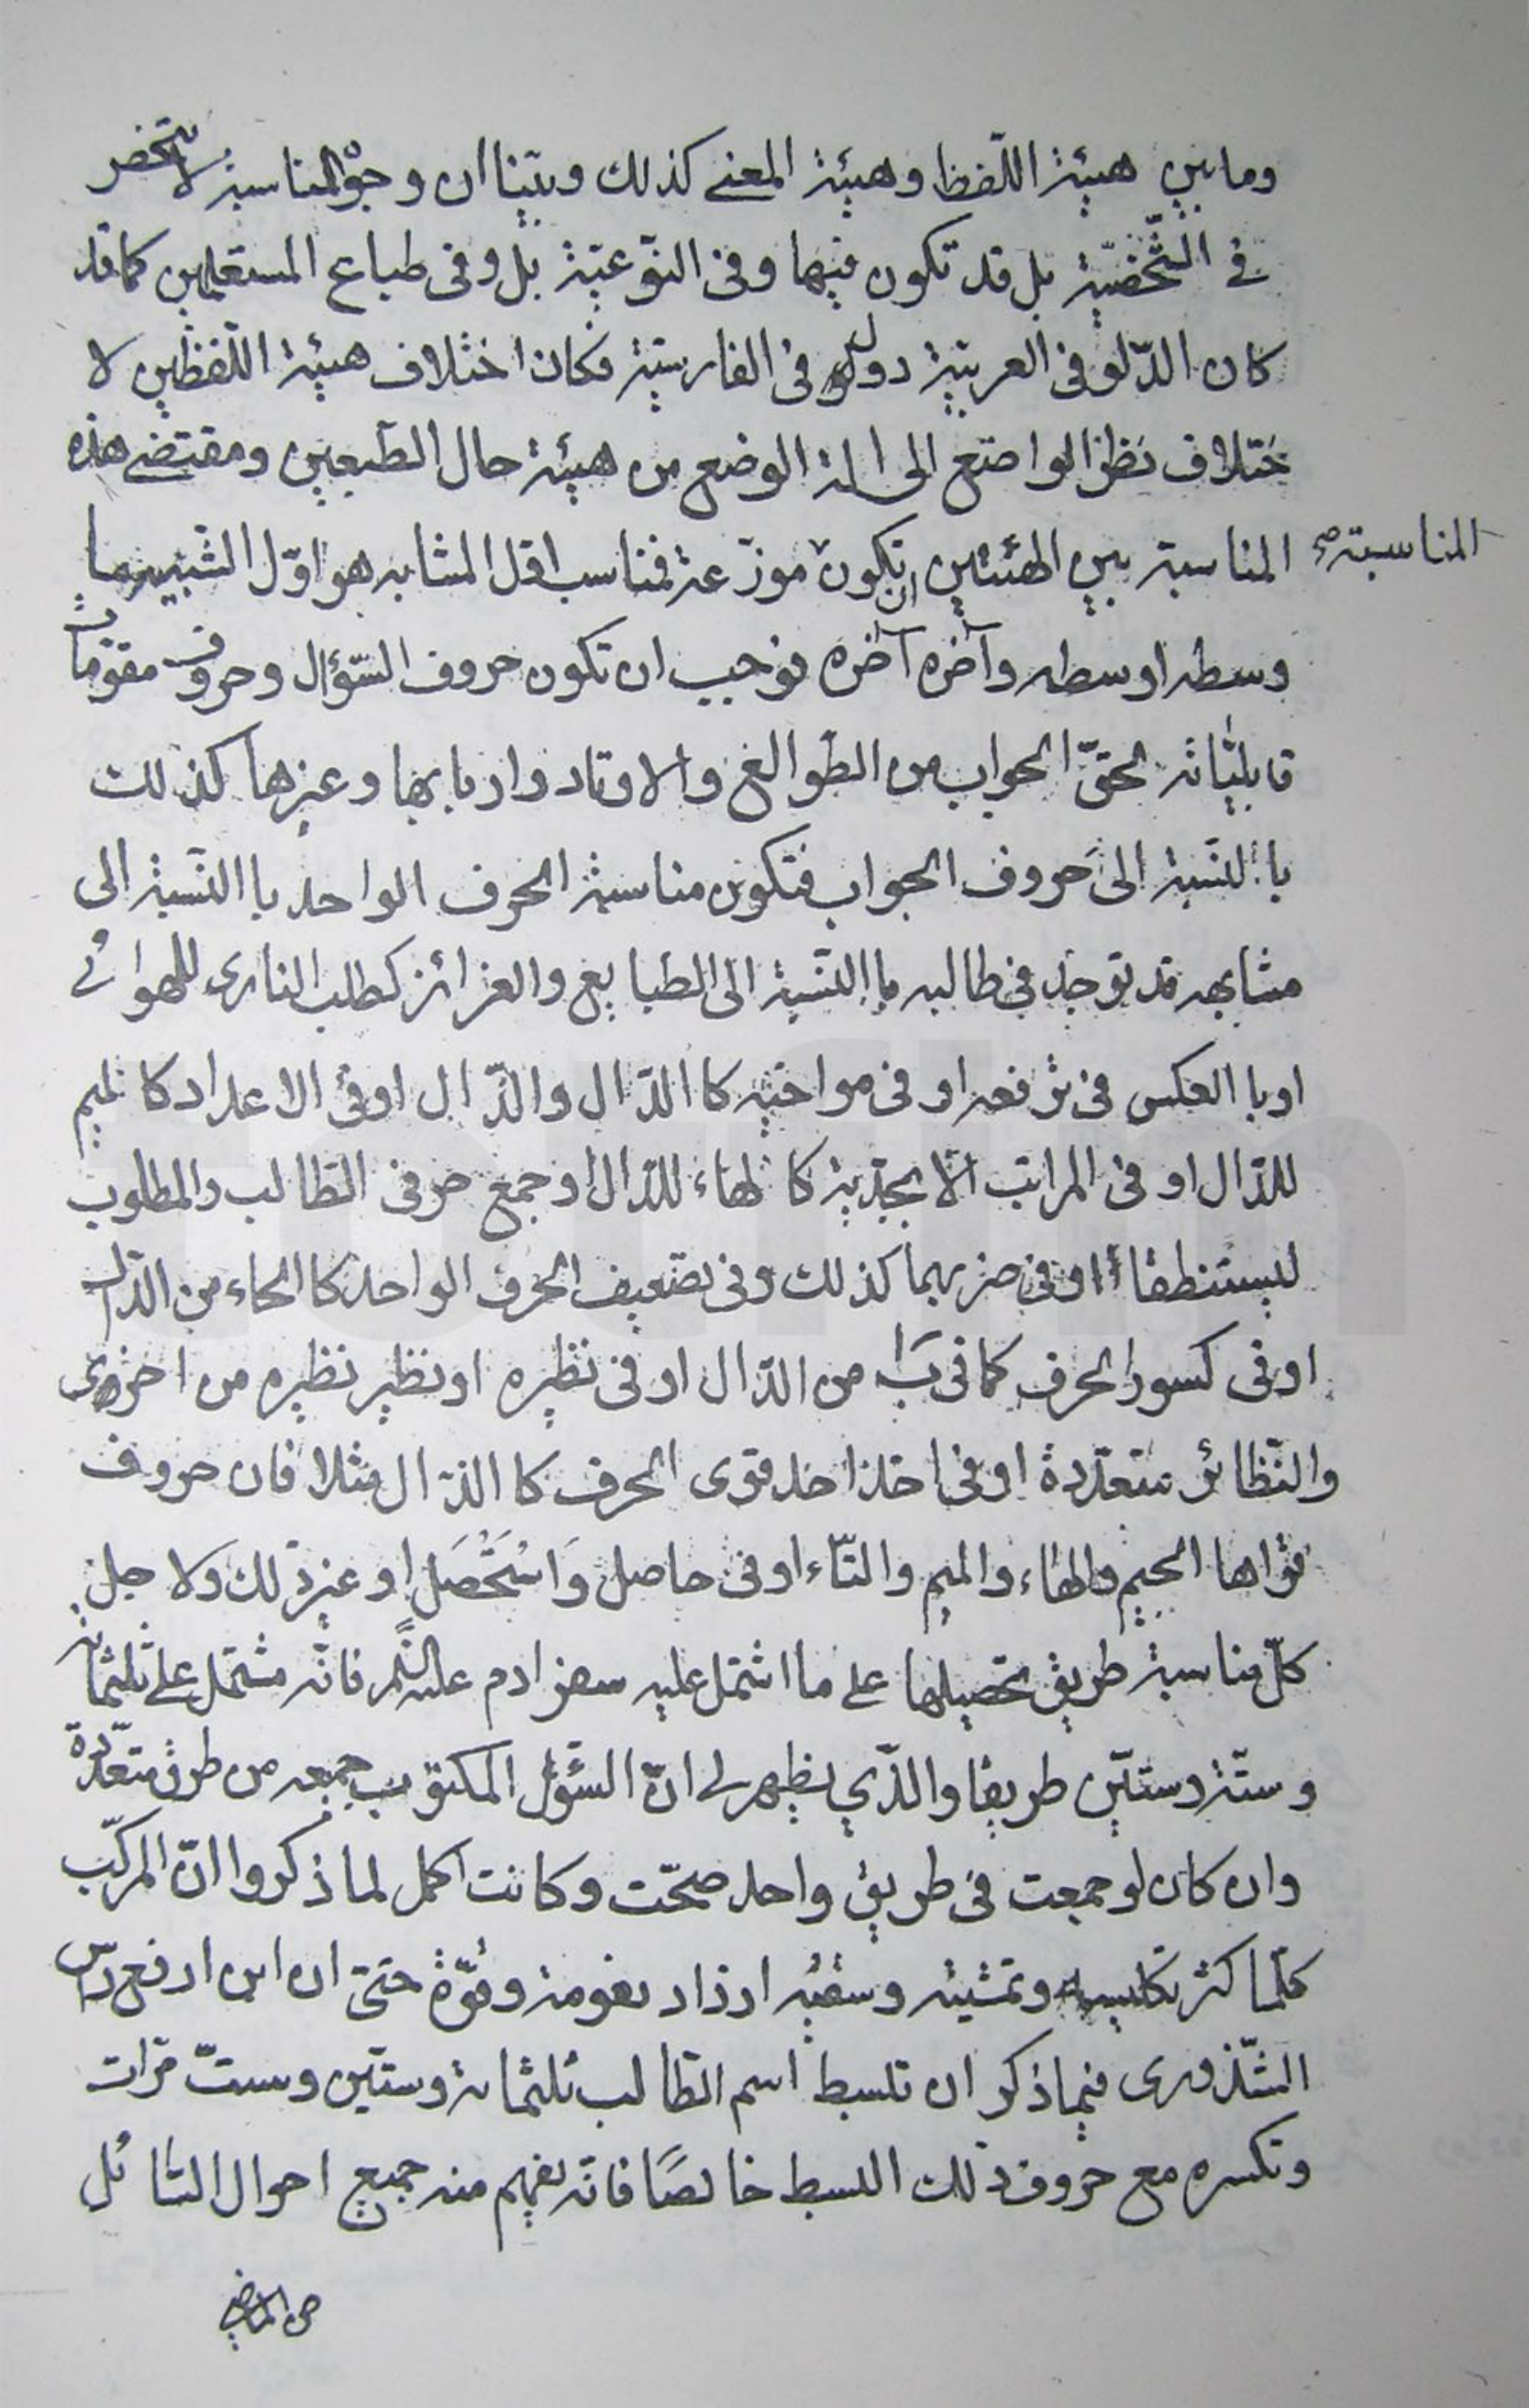 وما بين هيئة اللّفظ وهيئة المعنى كذلك وبيّنا ان وجوه المناسبة لا تنحصر
في الشّخصيّة بل قد تكون فيها وفى النّوعيّة بل وفى طباع المستعملين كما قد
كان الدّلو فى العربيّة دول فى الفارسيّة فكان اختلاف هيئة اللّفظين لا
ختلاف نظر الواضع الى الة الوضع من هيئة حال الطّبعين ومقتضى هذه
المناسبة
المناسبة بين الهيئتين ان تكون موزّعة فمناسب اوّل المشابه هو اوّل الشّبيه وما
وسطه اوسطه وآخره آخره توجب ان تكون حروف السّؤال وحروف مقوّمات
قابليّاته لحقّ الجواب من الطّوالع والاوتاد واربابها وغيرها كذلك
باالنّسبة الى حروف الجواب فتكون مناسبة الحرف الواحد باالنّسبة الى
مشابهه قد توجد فى طالبه باالنّسبة الى الطبايع والغرائز كطلب النارى للهوائى
اوباالعكس فى ترفعه او فى مواخيه كاالدّال والذّال اوفى الاعداد كالميم
للدّال او فى المراتب الابجديّة كالهاء للدّال اوجمع حرفى الطّالب والمطلوب
ليستنطقا اوفى ضربهما كذلك وفى تضعيف الحرف الواحد كاالحاء من الدّال
اوفى كسور الحرف كما فى ب من الدّال اوفى نظيره اونظير نظيره من اخرى
والنّظائر متعدّدة اوفى اخذ احد قوى الحرف كاالدّال مثلا فان حروف
قواها الجيم والهاء والميم والتّاء اوفى حاصل واستحصل او غير ذلك ولاجل
كلّ مناسبة طريق تحصيلها على ما اشتمل عليه سفر ادم عليه السّلم فانّه مشتمل على ثلثمائة
وستّة وستّين طريقا والذّي يظهر لى انّ السّؤل المكتوب جمعه من طرق متعدّدة
وان كان لو جمعت فى طريق واحد صحّت وكانت اكمل لما ذكروا انّ المركّب
كلّما كثر تكليسه وتمشيته وسقيه ازداد نعومة وقوّة حتىّ ان ابن ارفع راس
الشّذورى فيما ذكر ان تبسط اسم الطّالب ثلثمائة وستّين وستّ مرّات
وتكسره مع حروف ذلك البسط خالصًا فانّه يفهم منه جميع احوال السّائل